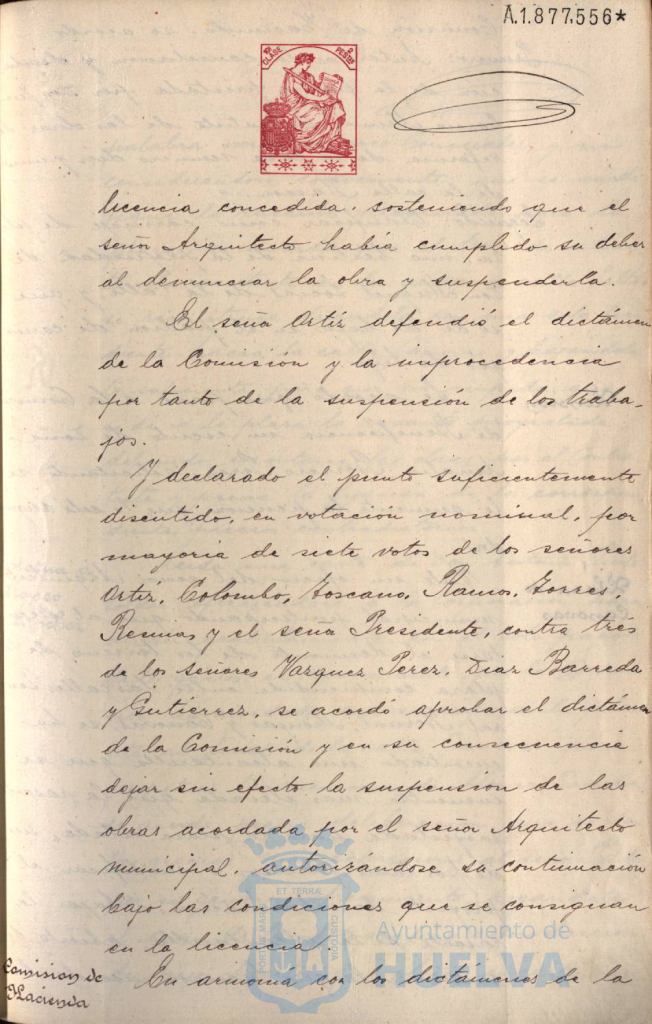 A.1.877,556*
CLASE
PESETAS
licencia concedida. sosteniendo que el
señor Arquitecto había cumplido su deber
al denunciar la obra y suspenderla.
El señor Ortíz defendió el dictámen
de la Comisión y la improcedencia
por tanto de la suspensión de los traba-
jos.
Y declarado el punto suficientemente
discutido, en votación nominal, por
mayoria de siete votos de los señores
Ortíz, Colombo, Toscano, Ramos, Torres,
y el señor Presidente, contra tres
de los señores Vazquez Perez, Diaz Barreda
y Gutiérrez, se acordó aprobar el dictámen
de la Comisión y en su consecuencia
dejar sin efecto la suspensión de las
obras acordada por el señor Arquitecto
municipal, autorizándose su continuación
bajo las condiciones que se consignan
en la licencia.
Comision de
Hacienda
En armonía con los dictámenes de la
Ayuntamiento de
HUELVA